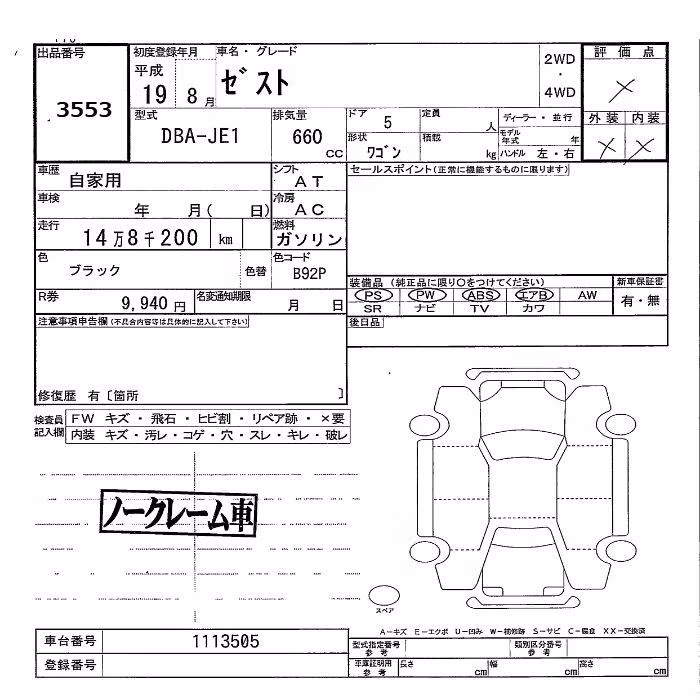 出品番号
3553
初度登録年月
平成
19 8 月
車名・グレード
ゼスト
2WD
・
4WD
評価点
外装 内装
型式
DBA-JE1
排気量
660
CC
ドア
5
形状
ワゴン
定員
人
積載
kg
ディーラー・並行
モデル年式 年
ハンドル 左・右
車歴
自家用
シフト
AT
車検
年 月( 日)
冷房
AC
走行
14万8千200 km
燃料
ガソリン
色
ブラック
色替
色コード
B92P
R券
9,940 円
名変通知期限
月 日
セールスポイント(正常に機能するものに限ります)
装備品 (純正品に限り○をつけてください)
PS PW ABS エアB AW
SR ナビ TV カワ
新車保証書
有・無
後日品
注意事項申告欄(不具合内容等は具体的に記入して下さい)
修復歴 有〔箇所 〕
検査員記入欄
FW キズ・飛石・ヒビ割・リペア跡・×要
内装 キズ・汚レ・コゲ・穴・スレ・キレ・破レ
ノークレーム車
スペア
A-キズ E-エクボ U-凹み W-補修跡 S-サビ C-腐食 XX-交換済
車台番号
1113505
登録番号
型式指定番号 参考
類別区分番号 参考
車庫証明用 参考
長さ cm
幅 cm
高さ cm